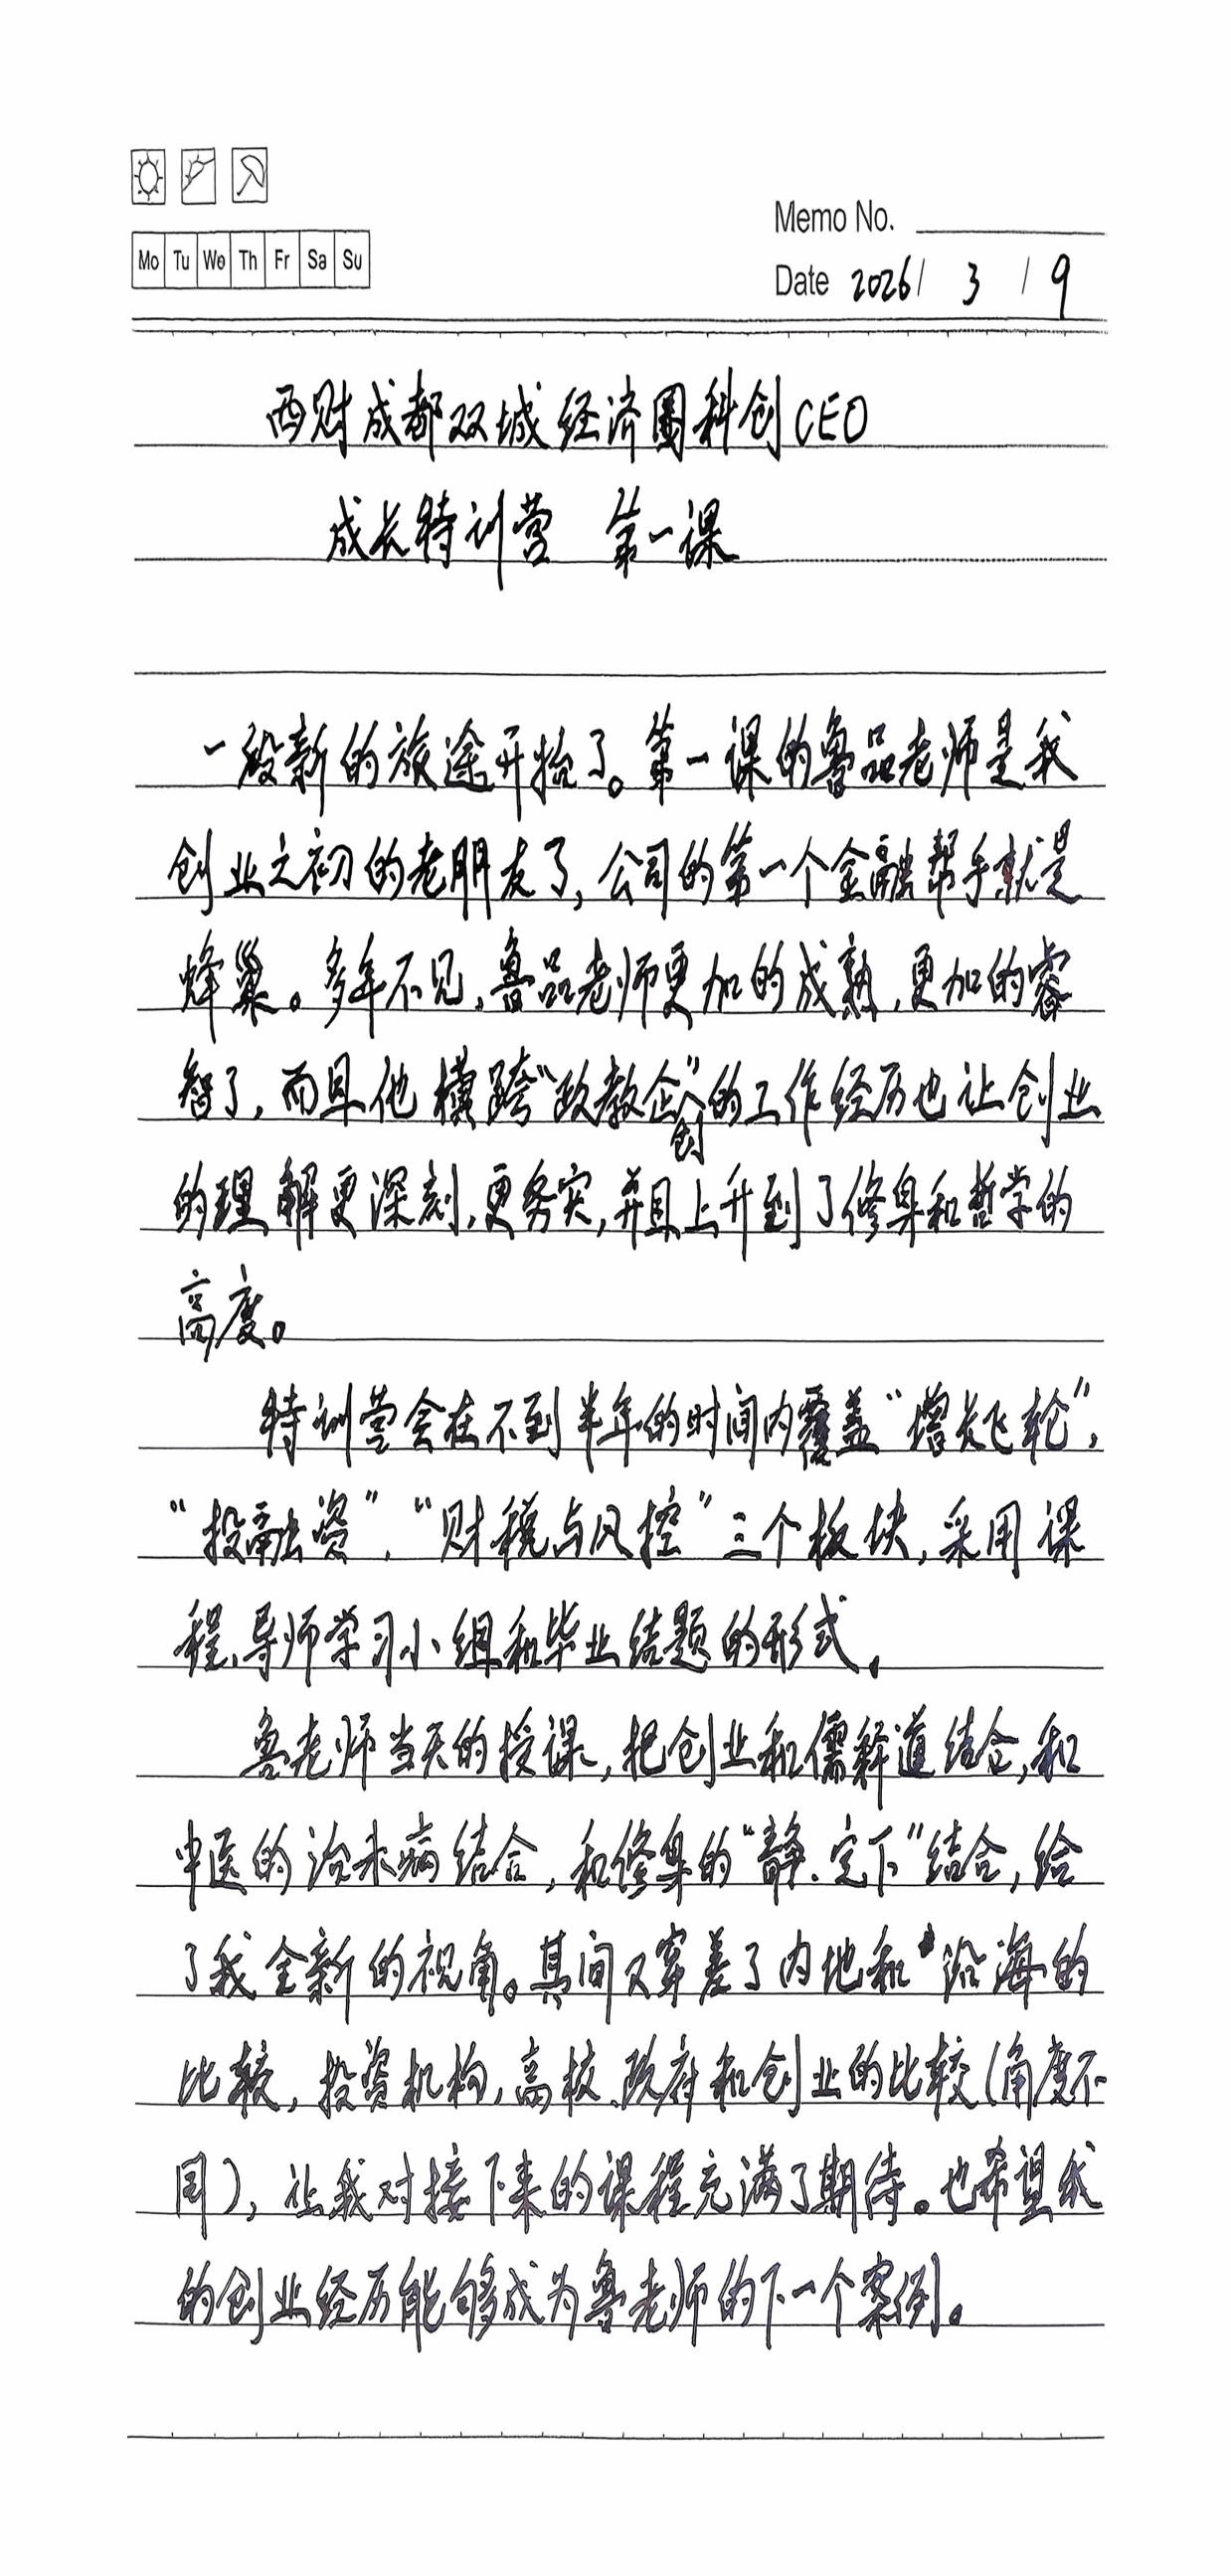 Mo Tu We Th Fr Sa Su
Memo No.
Date 2026/ 3 / 9
西财成都双城经济圈科创CEO
成长特训营 第一课
一段新的旅途开始了。第一课的鲁品老师是我
创业之初的老朋友了,公司的第一个金融帮手就是
蜂巢。多年不见,鲁品老师更加的成熟,更加的睿
智了,而且他横跨“政教企创”的工作经历也让创业
的理解更深刻,更务实,并且上升到了修身和哲学的
高度。
特训营会在不到半年的时间内覆盖“增长飞轮”,
“投融资”,“财税与风控”三个板块,采用课
程、导师学习小组和毕业结题的形式。
鲁老师当天的授课,把创业和儒释道结合,和
中医的治未病结合,和修身的“静、定下”结合,给
了我全新的视角。其间又穿差了内地和沿海的
比较,投资机构,高校、政府和创业的比较(角度不
同),让我对接下来的课程充满了期待。也希望我
的创业经历能够成为鲁老师的下一个案例。